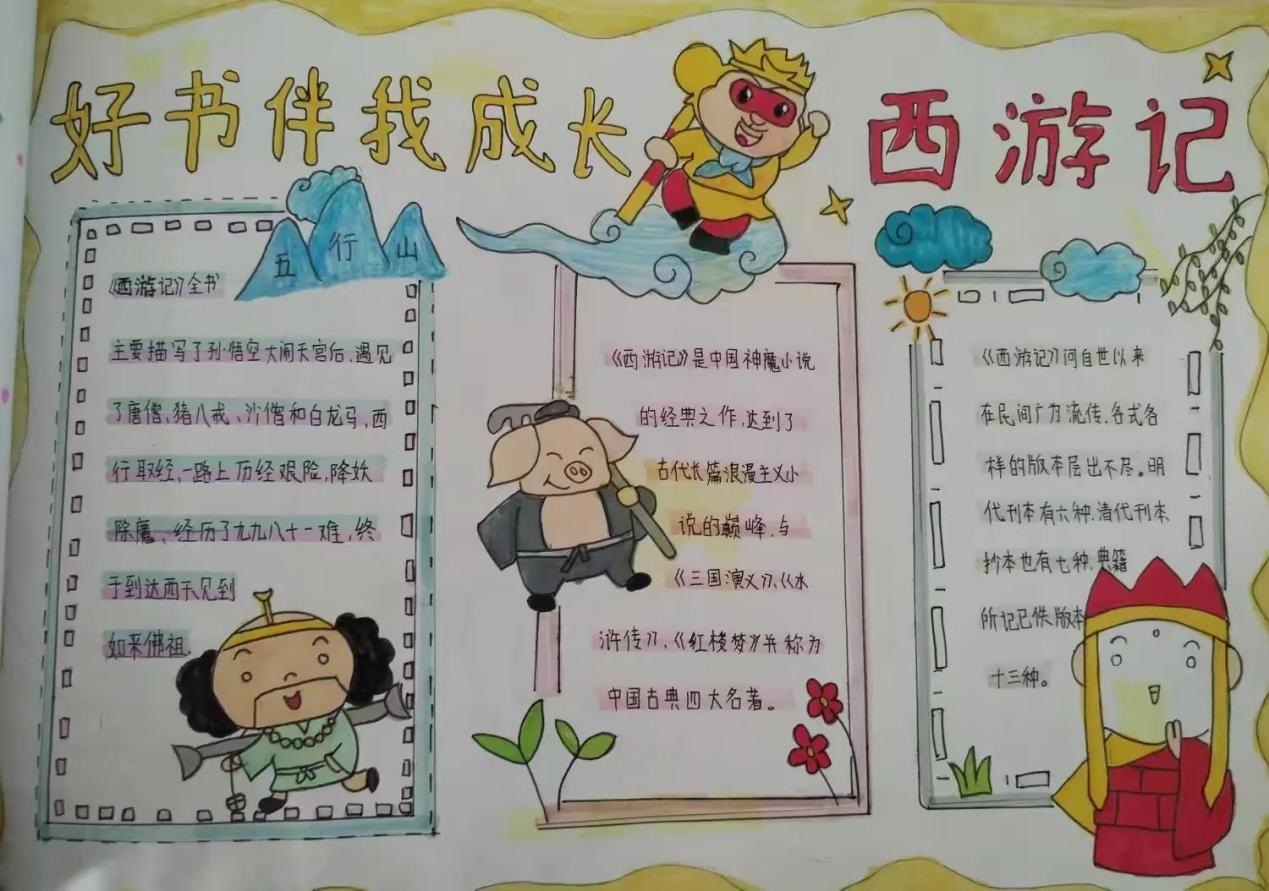 好书伴我成长
西游记
五行山
《西游记》全书
主要描写了孙悟空大闹天宫后,遇见
了唐僧、猪八戒、沙僧和白龙马,西
行取经,一路上历经艰险,降妖
除魔,经历了九九八十一难,终
于到达西天见到
如来佛祖.
《西游记》是中国神魔小说
的经典之作,达到了
古代长篇浪漫主义小
说的巅峰,与
《三国演义》、《水
浒传》、《红楼梦》并称为
中国古典四大名著。
《西游记》问自世以来
在民间广为流传,各式各
样的版本层出不尽。明
代刊本有六种,清代刊本
抄本也有七种,典籍
所记已佚版本
十三种。